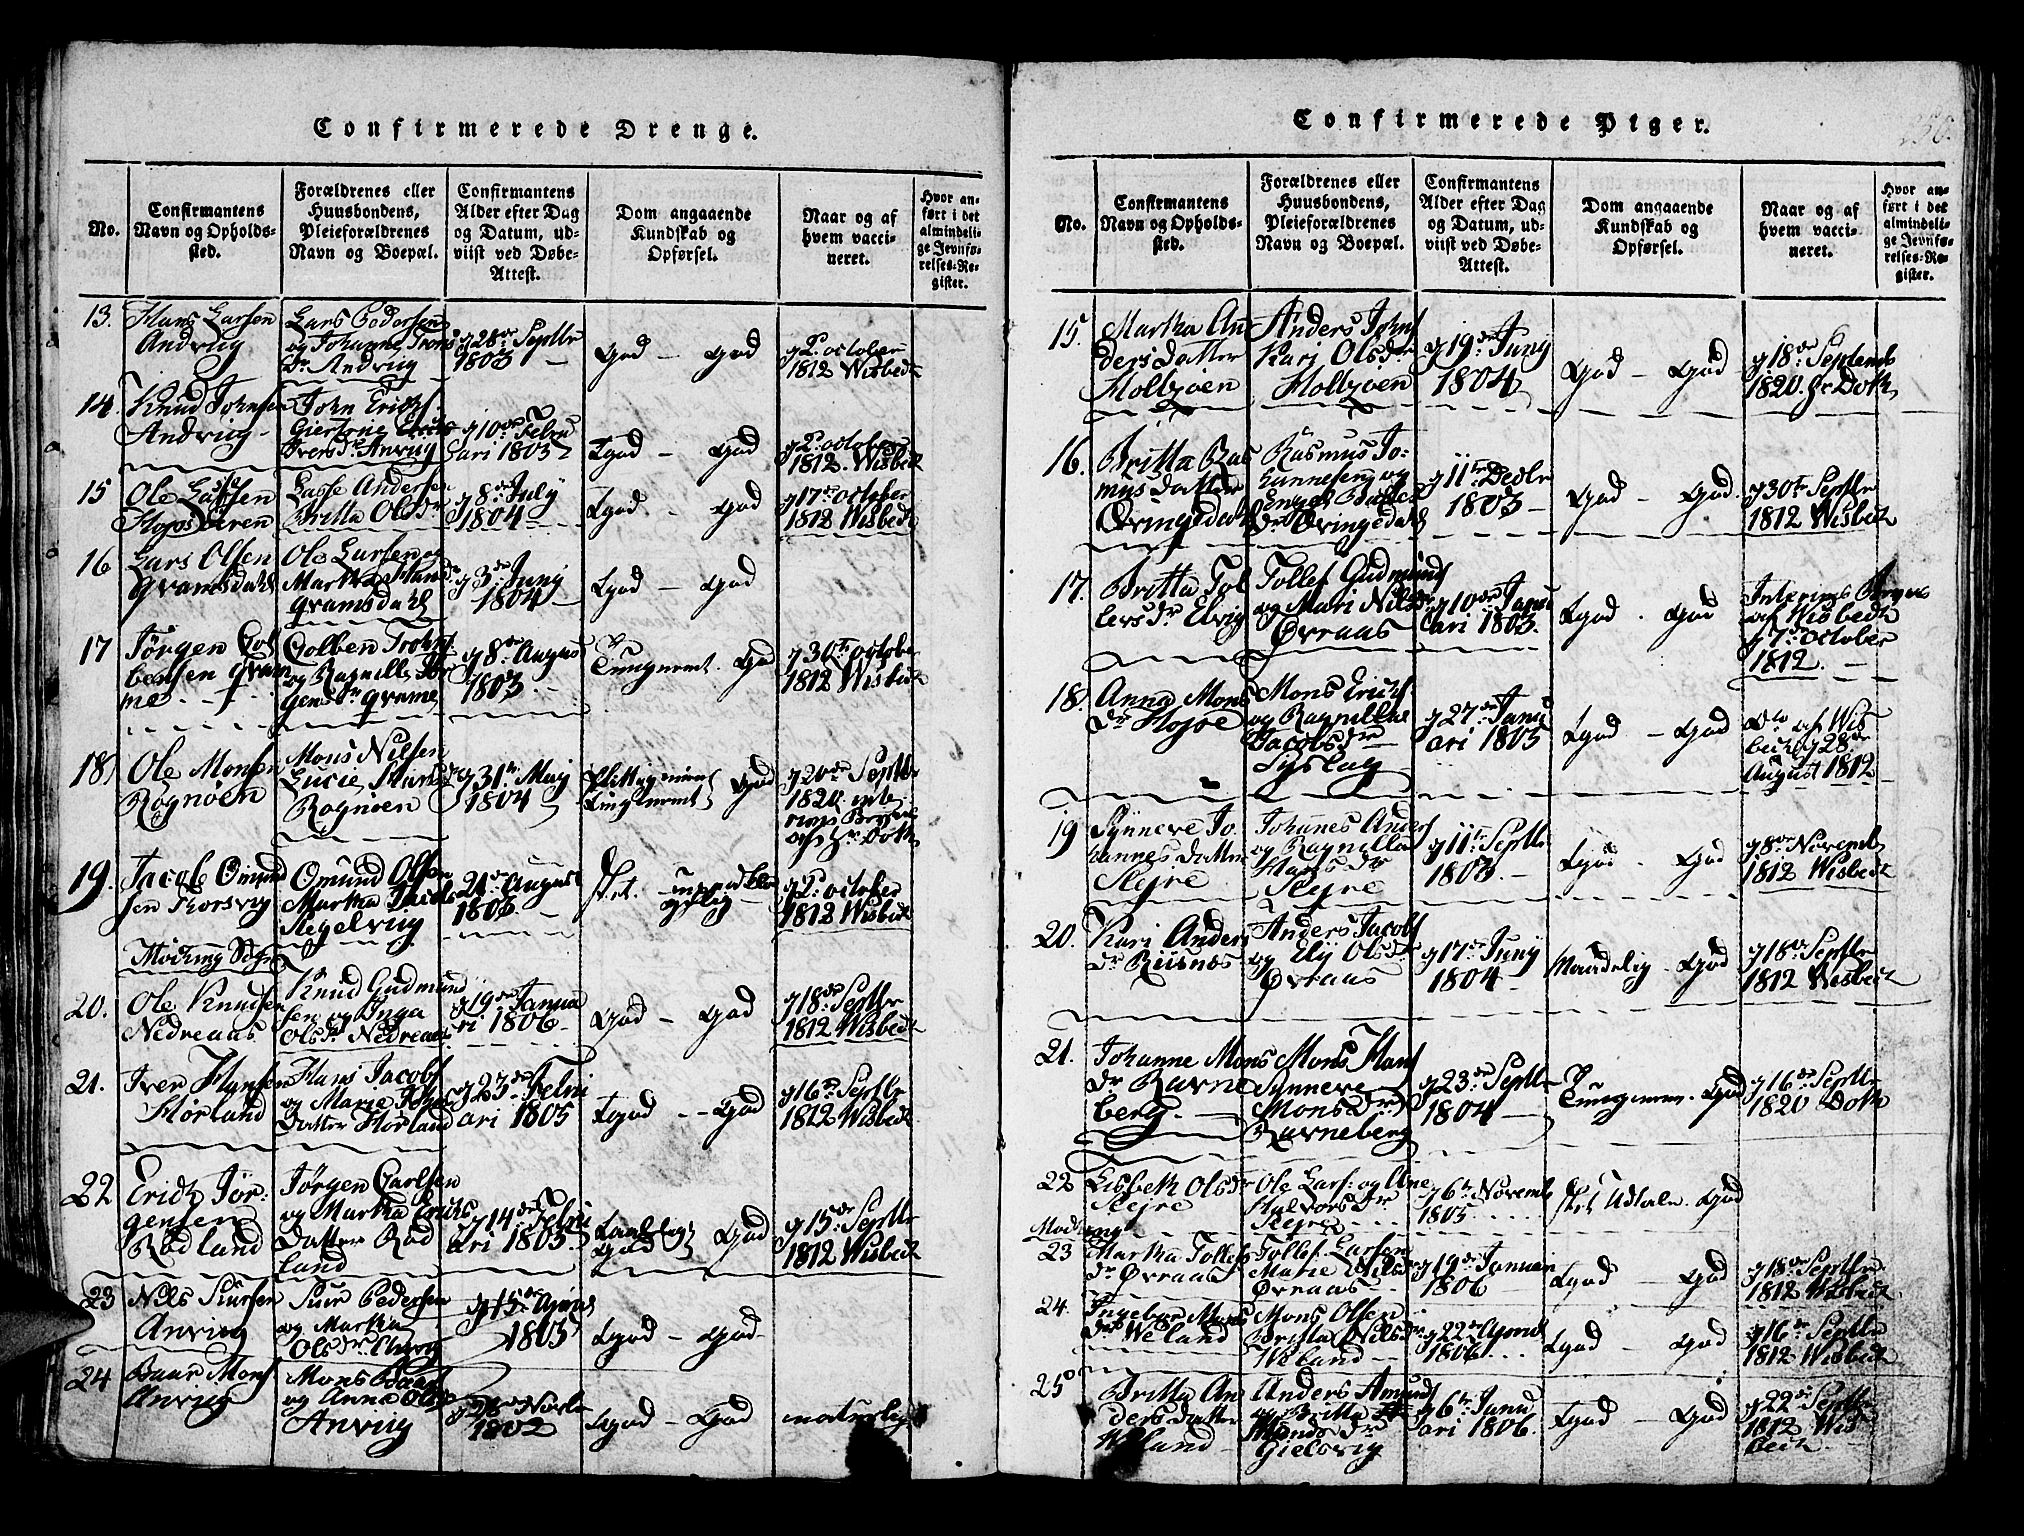 Confirmerede Drenge.
No.
Confirmantens
Navn og Opholds-
sted.
Forældrenes eller
Huusbondens,
Pleieforældrenes
Navn og Boepæl.
Confirmantens
Alder efter Dag
og Datum, ud-
viist ved Døbe-
Attest.
Dom angaaende
Kundskab og
Opførsel.
Naar og af
hvem vacci-
neret.
Hvor an-
ført i det
almindeli-
ge Jevnfø-
relses-Re-
gister.
13.
Hans Larsen
Andvig
Lars Pedersen
og Johanne
Dr Andvig
28de Septbr
1803
God – God
2. october
1812 Wisbech
14.
Knud Johnsen
Andvig
John Erichs
Iversdr Anvig
10de Febru
ari 1803
God – God
2. october
1812. Wisbech
15
Ole Lassen
Lasse Andersen
Britta Olsdr
8de July
1804
God – God
17de october
1812 Wisbech
16
Lars Olsen
Gramsdahl
Ole Larsen og
Martha Hansdr
Gramsdahl
3de Juny
1804
God – God
17
Jørgen Col
bensen Gram
me
Colben
og Ragnille Jør
gensdr Grame
8de Augus
1803
Tungnemt. God
30te october
1812 Wisbech
18
Ole Monsen
Rognøen
Mons Nilsen
Lucie
Rognøen
31te May
1804
Tungnemt God
20de Septbr
1820
af Hr Doth
19.
Jacob Omund
sen
Omund Olsen
Martha
21de August
1803.
Slet.
2. october
1812 Wisbech
20.
Ole Knudsen
Nedreaas
Knud Gudmund
sen og Inga
Olsdr Nedreaas
19de Janua
ri 1806
God – God
18de Septbr
1812 Wisbech
21.
Iver Hansen
Hørland
Hans Jacobs
og Marie
Datter Hørland
23de Febru
ari 1805
God – God
16de Septbr
1812 Wisbech
22
Erich Jør-
gensen
Rødland
Jørgen Carlsen
og Martha Erichs
Datter Rød
land
14de Febru
ari 1803.
God
15de Septbr
1812 Wisbech
23
Nils Siursen
Anvig
Siur Pedersen
og Martha
Olsdr
15de
1803
God – God
24
Baar Mons
Anvig
Mons
og Anna Olsdr
Anvig
1802
God – God
naturlig
Confirmerede Piger.
250.
No.
Confirmantens
Navn og Opholds-
sted.
Forældrenes eller
Huusbondens,
Pleieforældrenes
Navn og Boepæl.
Confirmantens
Alder efter Dag
og Datum, ud-
viist ved Døbe-
Attest.
Dom angaaende
Kundskab og
Opførsel.
Naar og af
hvem vacci-
neret.
Hvor an-
ført i det
almindeli-
ge Jevnfø-
relses-Re-
gister.
15.
Martha An
ders datter
Molbjøen
Anders Johns
Kari Olsdr
Molbjøen
19de Juny
1804
God – God
18de Septemb
1820. Hr Doth
16.
Britta Ras
mus datter
Øvringedahl
Rasmus Jo-
hannesen og
Dr Øvringedahl
11te Decbr
1803
God – God
30te Septbr
1812 Wisbech
17.
Britta Tol
lefsdr
Tollef Gudmunds
og Mari Nilsdr
Øvraas
10de Janu
ari 1803.
God . God
af Wisbech
7de october
1812.
18.
Anna Mons
Dr
Mons Erichs
og Ragnilla
Jacobsdr
27de Janu
ari 1805
God – God
Do af Wis
bech 28de
August 1812
19
Synneve Jo
hannes datter
Sleire
Johannes Anders
og Ragnilla
Hansdr
Sleire
11te Septbr
1803
God – God
8de Novemb
1812 Wisbech
20.
Kari Anders
Dr Riisnæs
Anders Jacobs
og Eli Olsdr
Øvraas
17de Juny
1804
Maadelig – God
18de Septbr
1812 Wisbech
21.
Johanne Mons
Dr Ravne
berg.
Mons Hans
Synneve
Monsdr
Ravneberg
23de Septbr
1804
God
16de Septbr
1820 Doth
22
Lisbeth Olsdr
Sleire
Ole Lars. og Ane
Halvorsdr
Sleire
6te Novemb
1805
Slet Udtale. God
23
Martha Tollefs
Dr Øvraas
Tollef Larsen
Marie Nilsdr
Øvraas
19de Januari
1806
God – God
18de Septbr
1812 Wisbech
24.
Ingebor Mons
Dr Weland
Mons Olsen
Britta Nilsdr
Weland
1806
God – God
16de Septbr
1812 Wisbech
25
Britta An
ders datter
Anders Amunds
og Britta
6te Janu
ari 1806.
God – God
22de Septbr
1812 Wis
bech